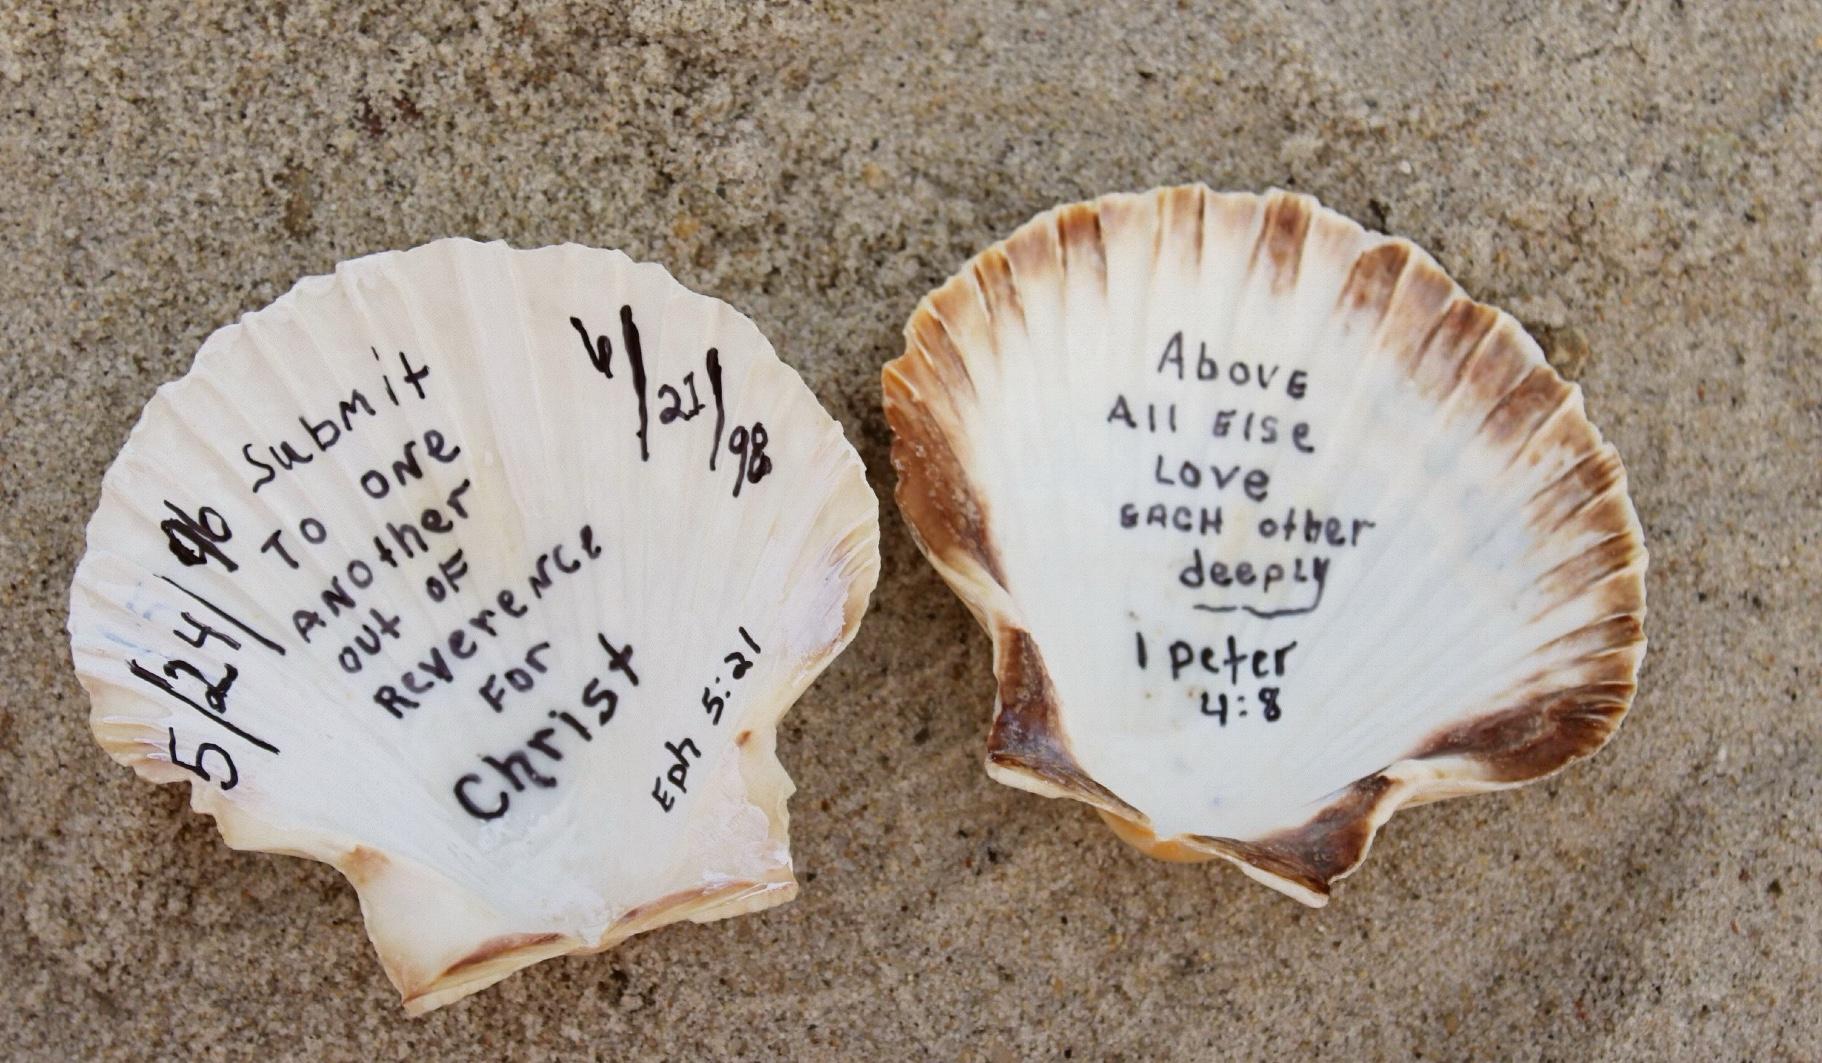 Submit
TO ONE
ANOther
OUt OF
ReVereNCe
FOr
Christ
Eph 5:21
5/24/96
6/21/98
Above
All Else
Love
EACH other
deepLy
1 peter
4:8